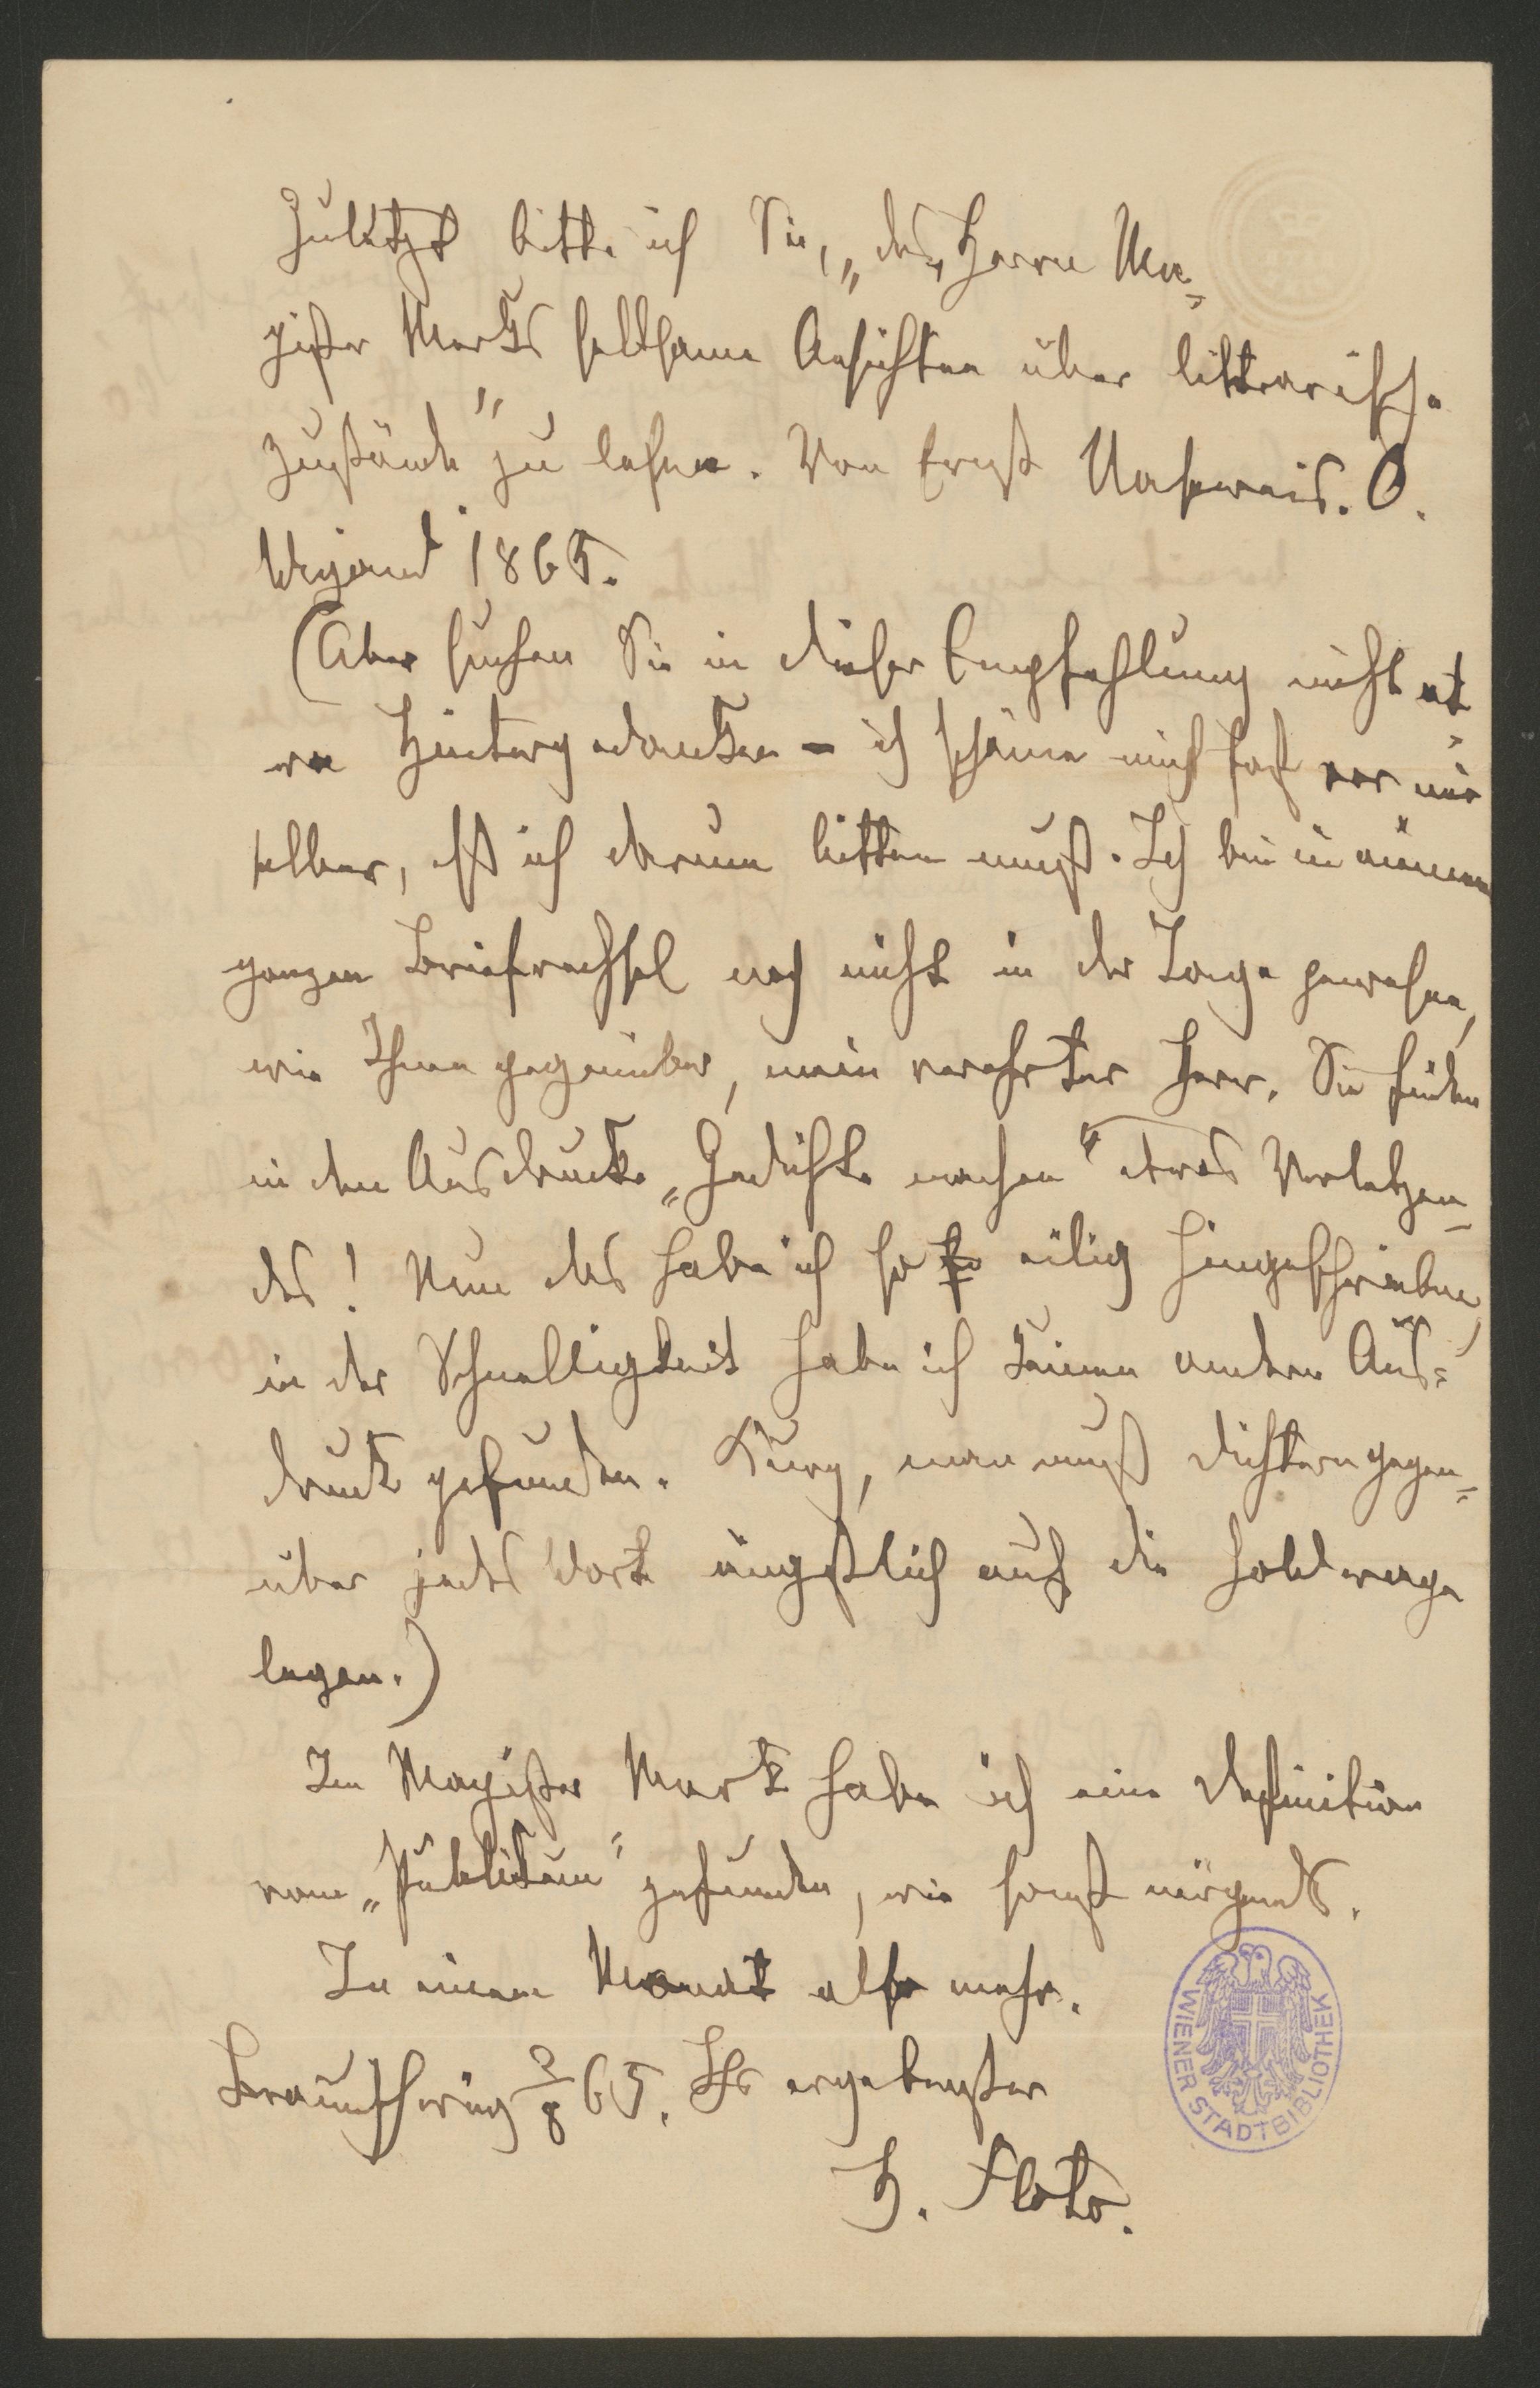 Zuletzt bitte ich Sie, „des Herrn Ma-
gister Marks seltsame Ansichten über litterarische
Zustände" zu lesen. Von Ernst Naseweis. O.
Wigand 1865.
(Aber suchen Sie in dieser Empfehlung nicht et-
wa Hintergedanken – ich schäme mich fast vor mir
selber, daß ich darum bitten muß. Ich bin in meinem
ganzen Briefwechsel noch nicht in der Lage gewesen,
wie Ihnen gegenüber, mein verehrter Herr. Sie finden
in dem Ausdrucke „Gedichte machen" etwas Verletzen-
des! Nun das habe ich so eilig hingeschrieben,
in der Schnelligkeit habe ich keinen andern Aus-
druck gefunden. Kurz, man muß Dichtern gegen-
über jedes Wort ängstlich auf die Goldwage
legen.)
Im Magister Mark habe ich eine Definition
vom „Publikum" gefunden, wie sonst nirgends.
In einem Monat also mehr.
Braunschweig 2/8 65. Ihr ergebenster
H. Floto.
WIENER STADTBIBLIOTHEK